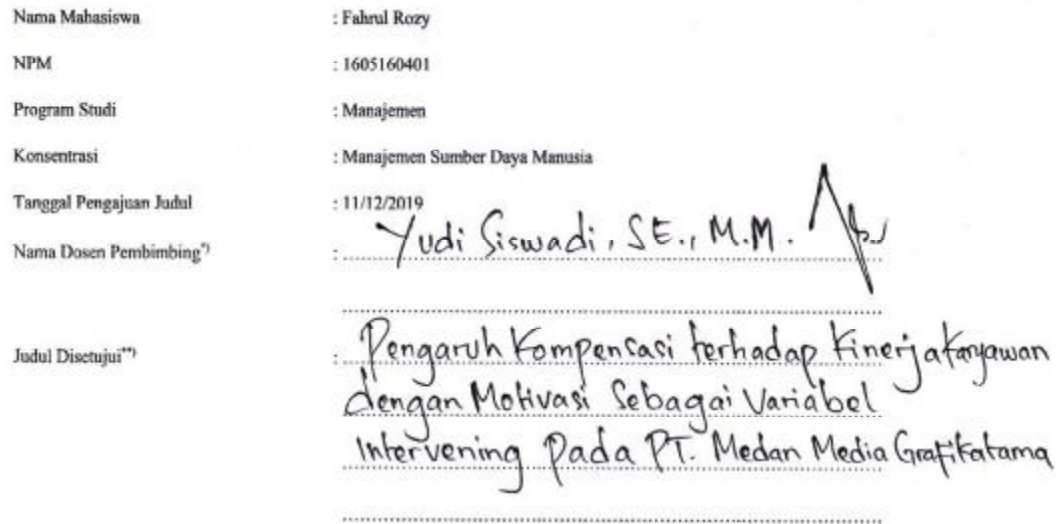 Nama Mahasiswa : Fahrul Rozy
NPM : 1605160401
Program Studi : Manajemen
Konsentrasi : Manajemen Sumber Daya Manusia
Tanggal Pengajuan Judul : 11/12/2019
Nama Dosen Pembimbing*) : Yudi Siswadi, SE., M.M.
Judul Disetujui**) : Pengaruh Kompensasi terhadap Kinerja Karyawan
dengan Motivasi Sebagai Variabel
Intervening Pada PT. Medan Media Grafikatama